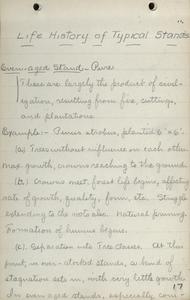 Life History of Typical Stands
Even-aged Stand:- Pure
These are largely the product of civil-
ization, resulting from fire, cuttings,
and plantations.
Example:- Pinus strobus, planted 6' x 6'.
(a) Trees without influence on each other
max. growth, crowns reaching to the ground.
(b) Crowns meet, forest life begins, affecting
rate of growth, quality, form, etc. Struggle
extending to the roots also. Natural pruning.
Formation of humus begins.
(c) Separation into Tree Classes. At this
point, in over-stocked stands, a kind of
stagnation sets in, with very little growth.
In even aged stands, especially
17